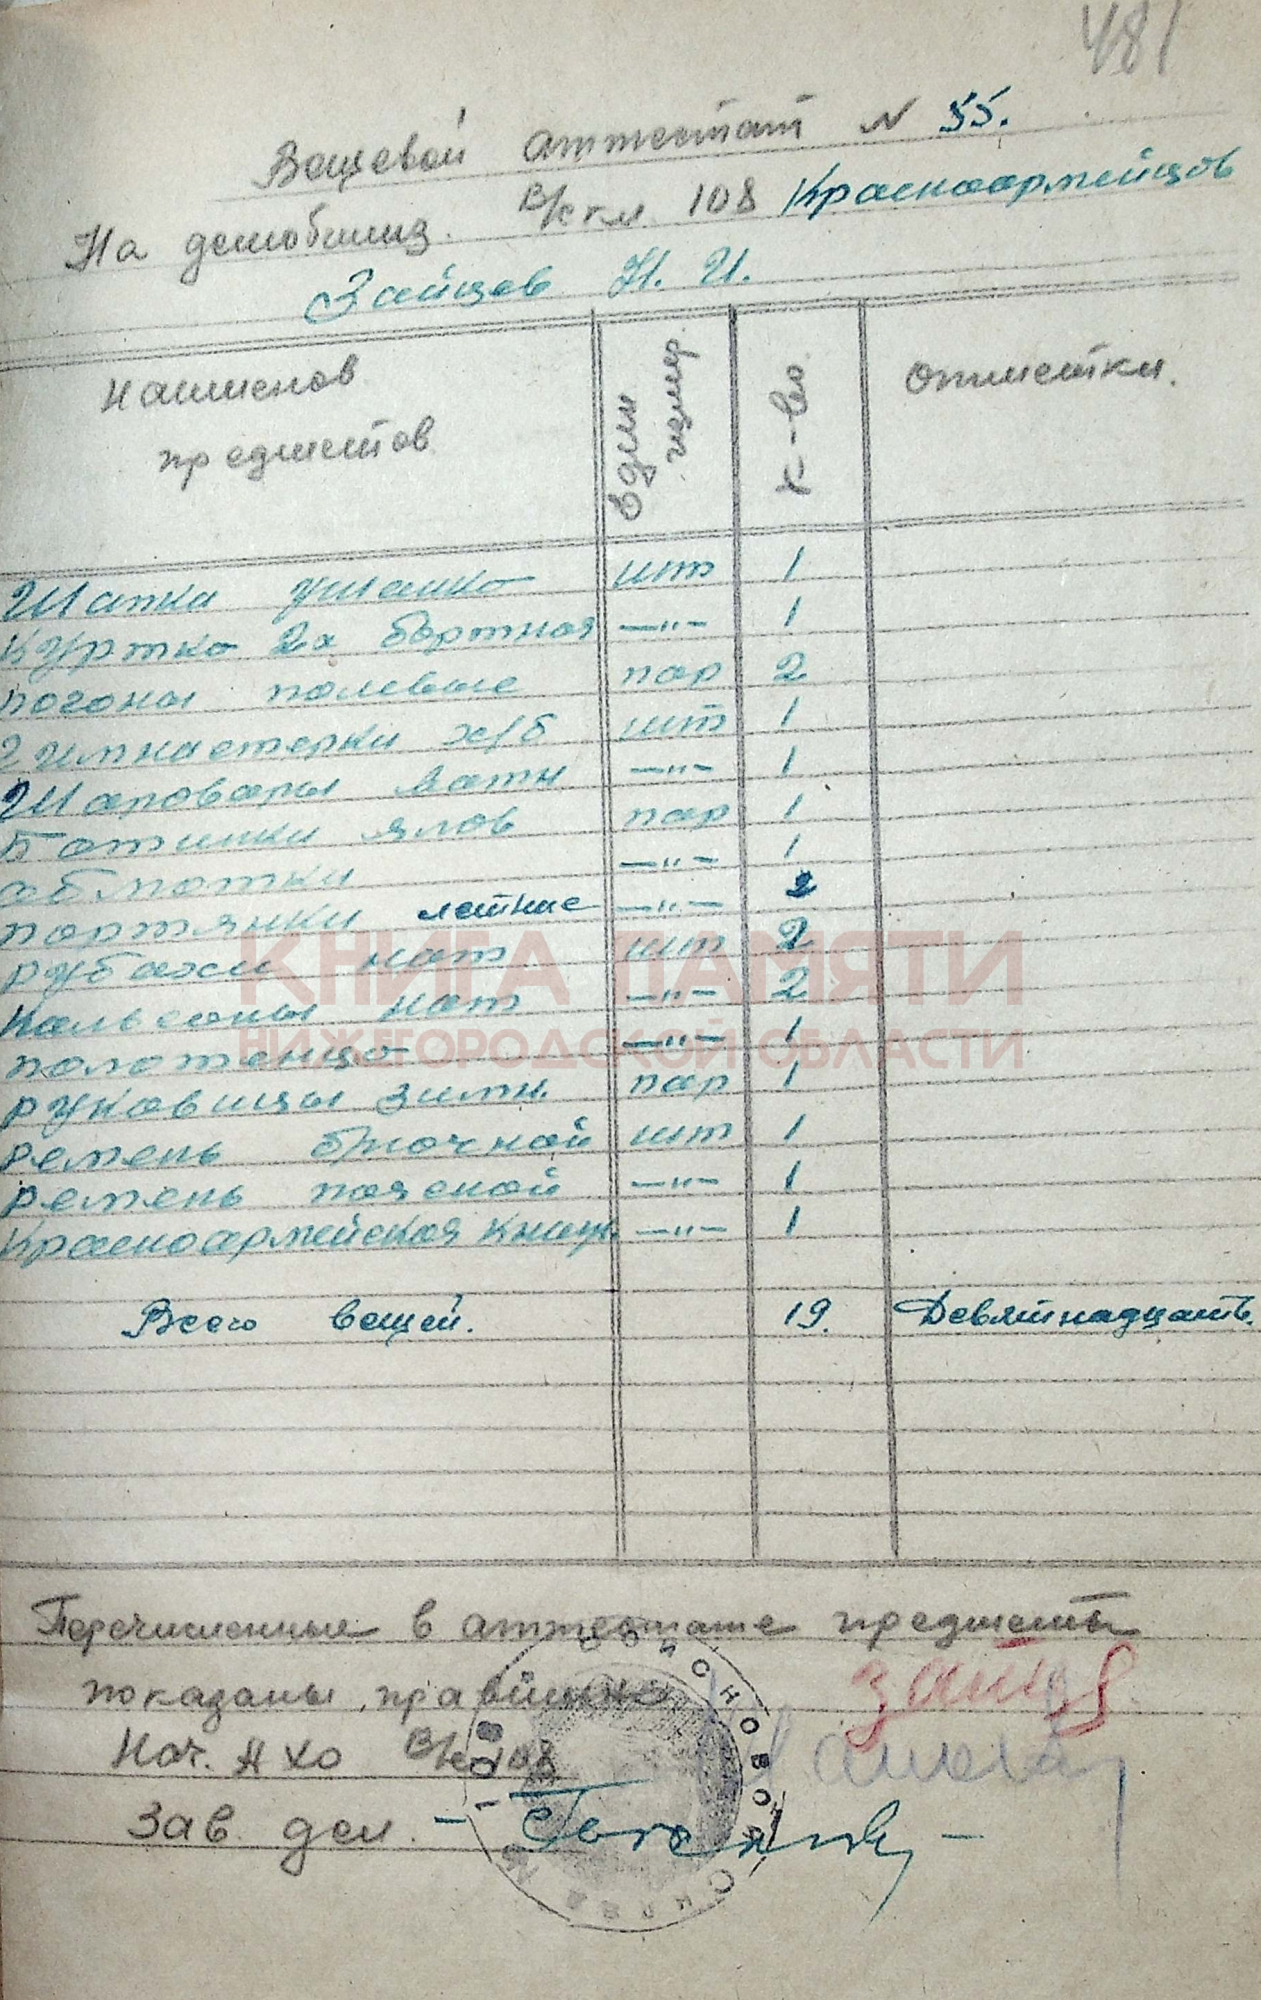 481
Вещевой аттестат N 55.
На демобилиз. в/скл 108 Красноармейцов
Зайцев Н. И.
Наименов предметов | Един измер. | К-во | Отметки.
Шапка ушанка | шт | 1
Куртка 2х бортная | —"— | 1
Погоны полевые | пар | 2
Гимнастерки х/б | шт | 1
Шаровары ватн | —"— | 1
Ботинки ялов | пар | 1
Обмотки | —"— | 1
Портянки летние | —"— | 2
Рубахи нат | шт | 2
Кальсоны нат | —"— | 2
Полотенцо | —"— | 1
Руковицы зимн. | пар | 1
Ремень брючной | шт | 1
Ремень поясной | —"— | 1
Красноармейская книж. | —"— | 1
Всего вещей. | 19. | Девятнадцать.
КНИГА ПАМЯТИ
НИЖЕГОРОДСКОЙ ОБЛАСТИ
Перечисленные в аттестате предметы
показаны правильно
Нач. АХО в/с 108
Зав. дел.